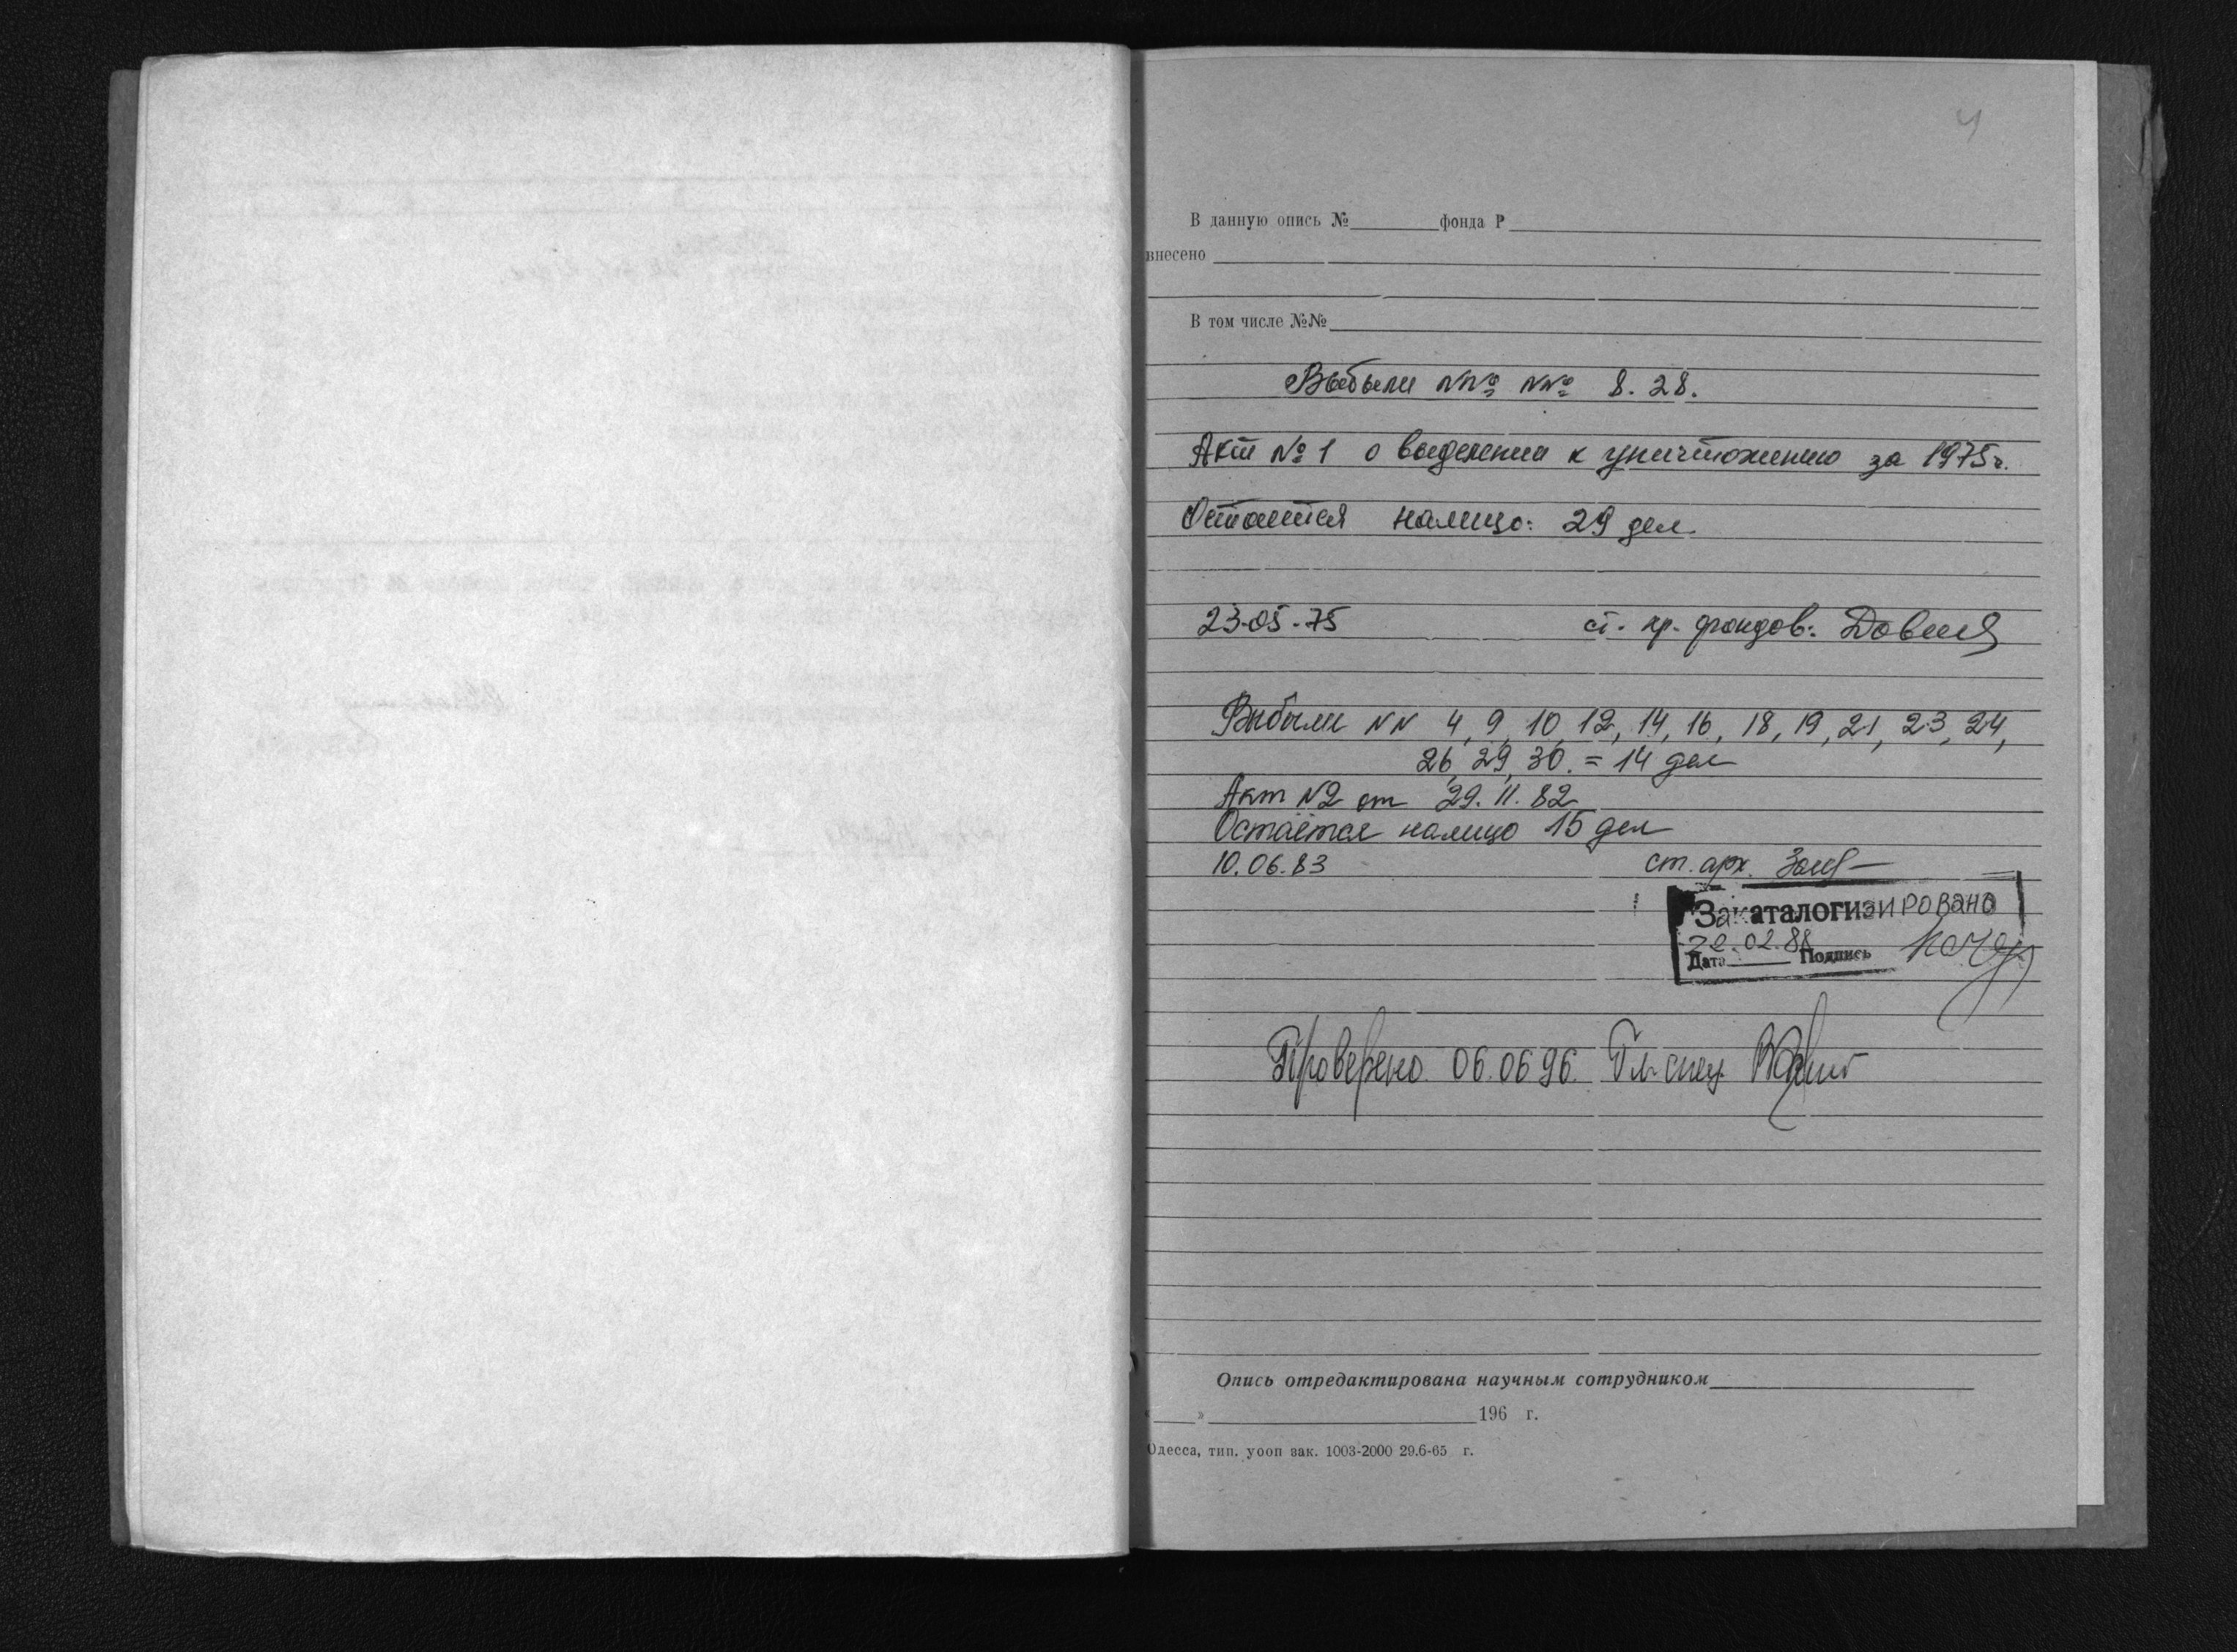 4
В данную опись № фонда Р
внесено
В том числе №№
Выбыли №№ №№ 8. 28.
Акт № 1 о выделении к уничтожению за 1975 г.
Остается налицо: 29 дел.
23.05.75 ст. хр. фондов:
Выбыли NN 4, 9, 10, 12, 14, 16, 18, 19, 21, 23, 24,
26, 29, 30. = 14 дел
Акт N2 от 29.11.82
Остаётся налицо 15 дел
10.06.83 ст. арх.
Закаталогизировано
22.02.88
Дата Подпись
Проверено. 06.06.96. Гл. спец.
Опись отредактирована научным сотрудником
« » 196 г.
Одесса, тип. уооп зак. 1003-2000 29.6-65 г.